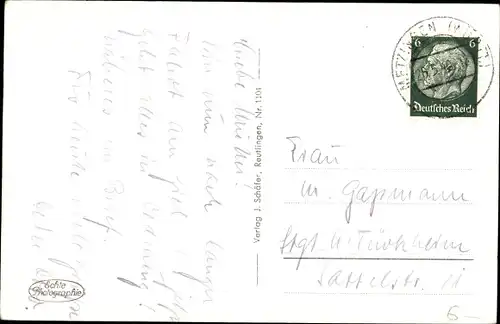 Liebe Mutter!
bin nun nach langer
Fahrt am Ziel
geht alles in Ordnung!
näheres im Brief.
Für heute
Echte
Photographie
Verlag J. Schäfer, Reutlingen, Nr. 1101
METZINGEN (WÜRTT)
6 6
Deutsches Reich
Frau
M. Gapmann
Stgt. U-Türkheim
Sattelstr.
6-